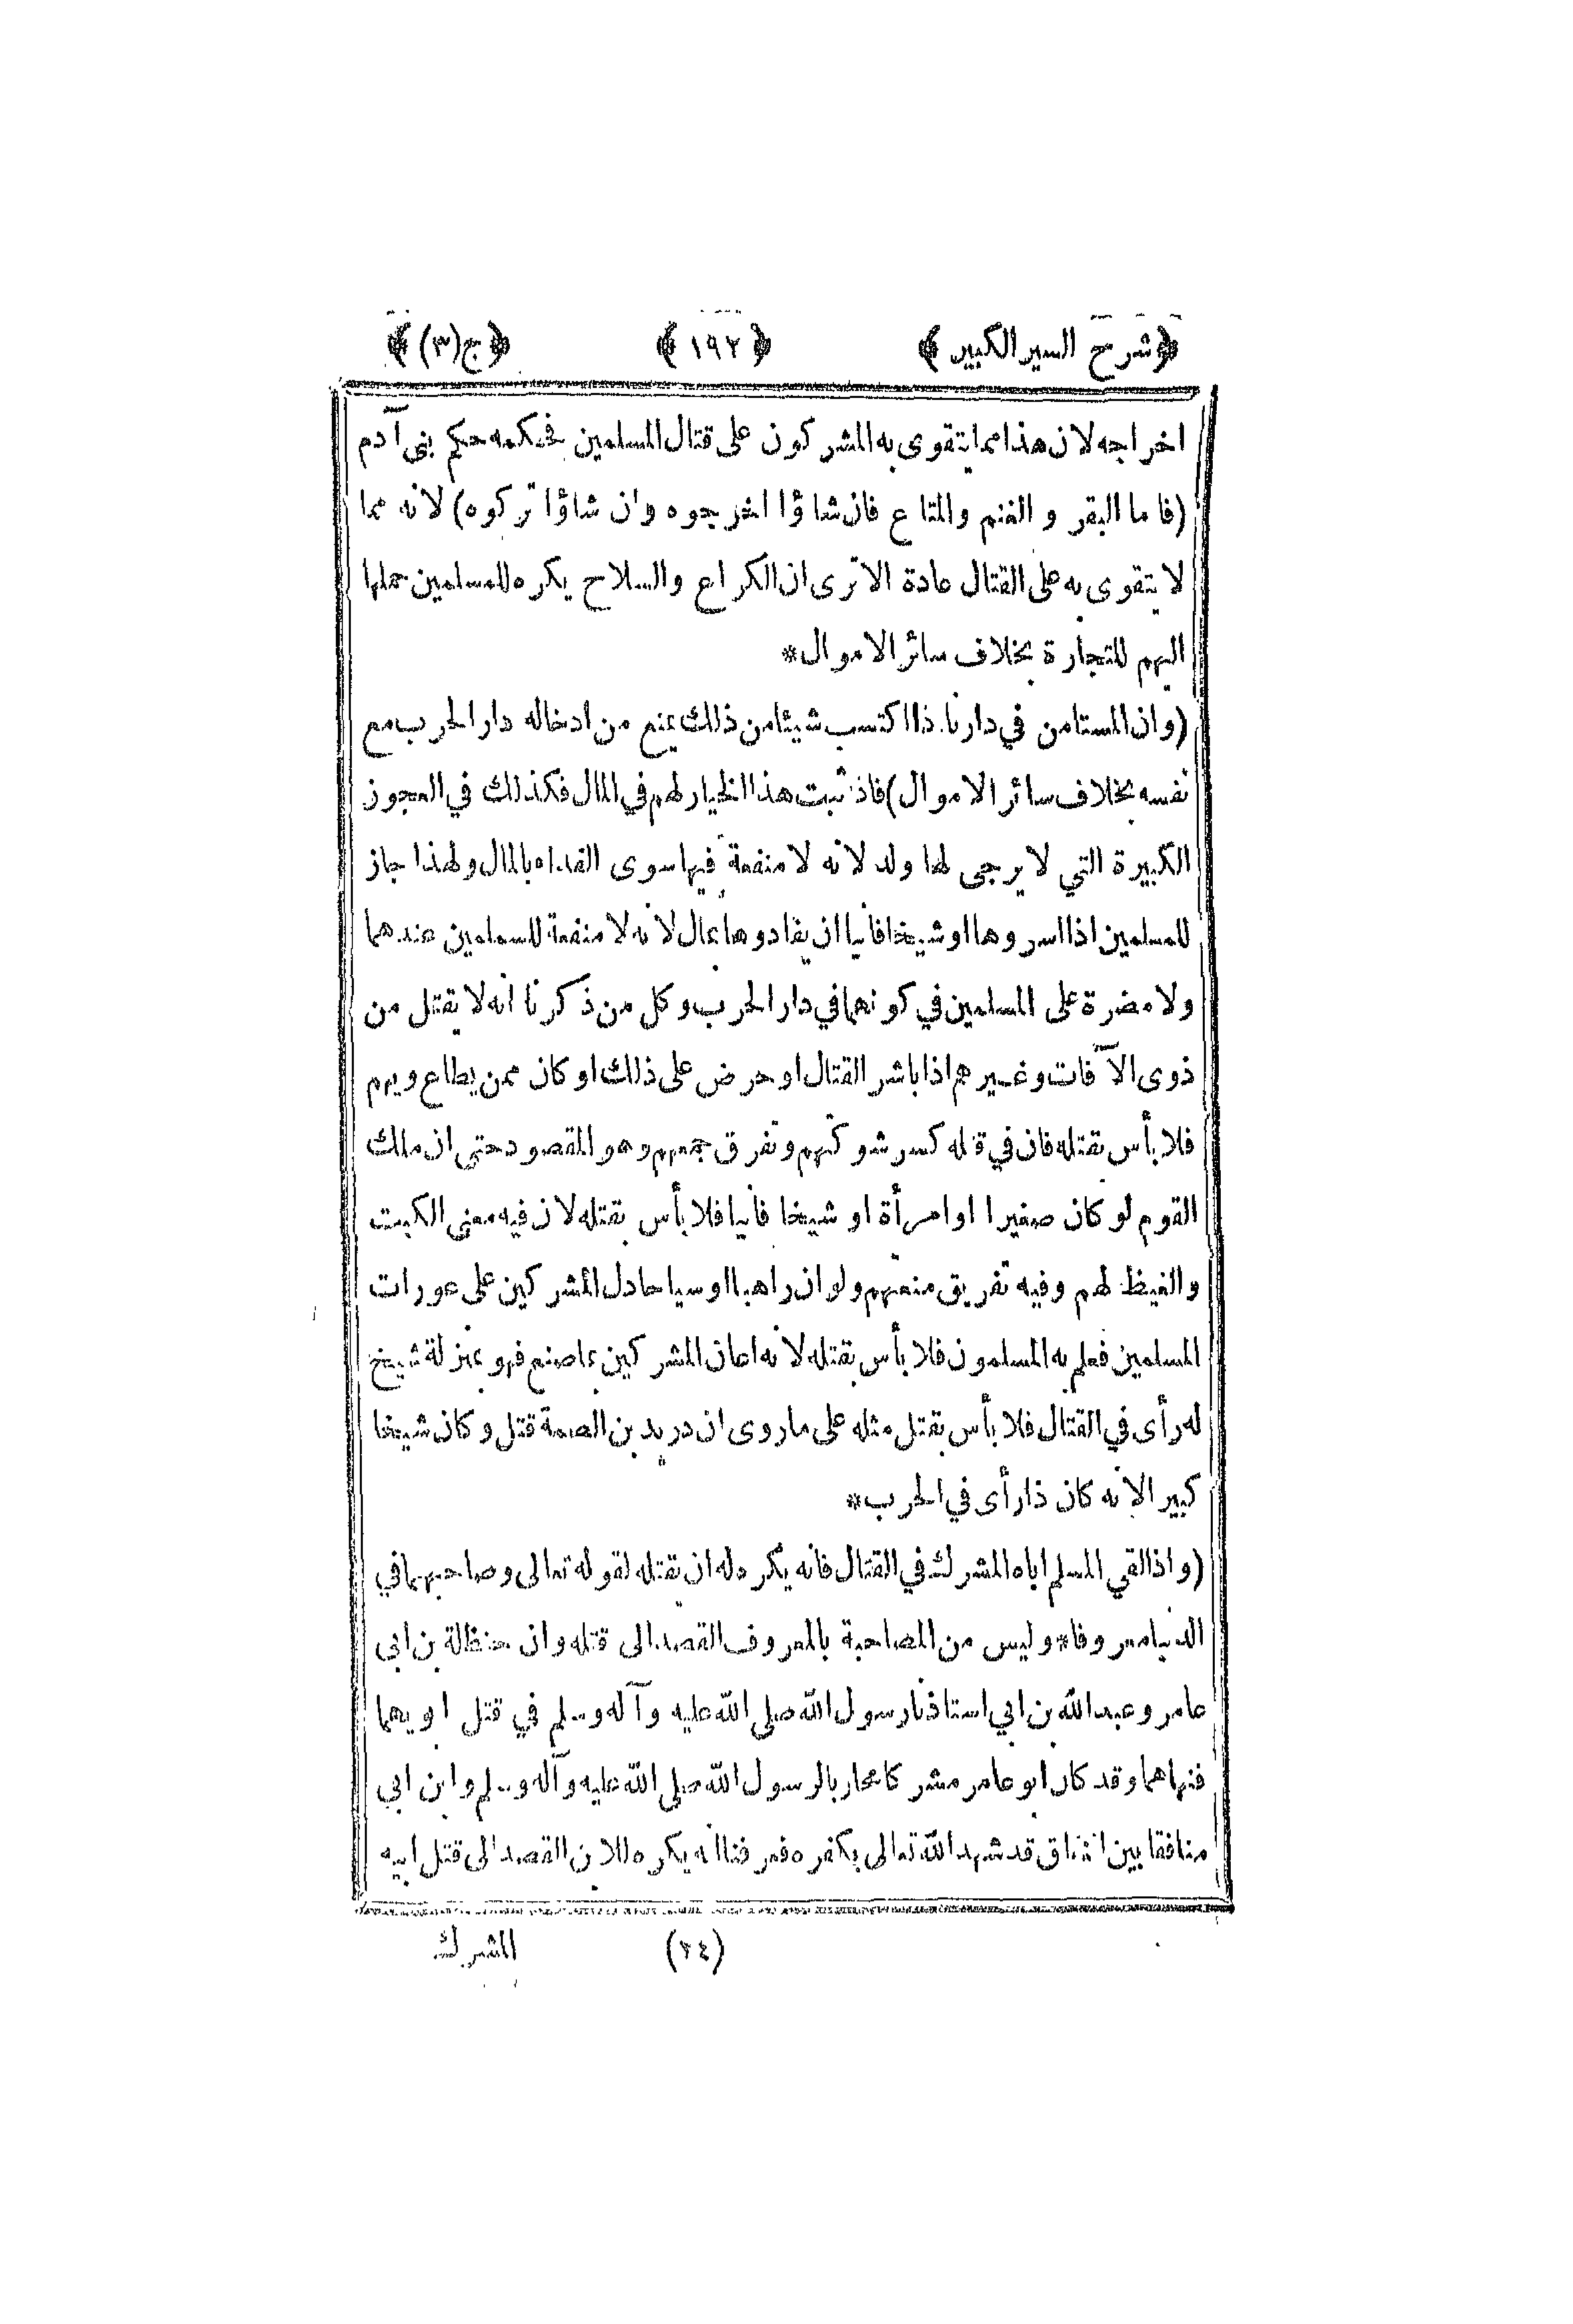 ﴿شرح السير الكبير﴾ ﴿١٩٢﴾ ﴿ج(٣)﴾
اخراجه لان هذا مما يتقوى به المشركون على قتال المسلمين فحكمه حكم بنى آدم
(فاما البقر و الغنم والمتاع فان شاؤا اخرجوه وان شاؤا تركوه) لانه مما
لا يتقوى به على القتال عادة الا ترى ان الكراع والسلاح يكره للمسلمين حملها
اليهم للتجارة بخلاف سائر الاموال*
(وان المستامن في دارنا اذا اكتسب شيئا من ذلك يمنع من ادخاله دار الحرب مع
نفسه بخلاف سائر الاموال) فاذا ثبت هذا الخيار لهم في المال فكذلك في العجوز
الكبيرة التي لا يرجى لها ولد لانه لا منفعة فيها سوى الفداء بالمال ولهذا جاز
للمسلمين اذا اسروها او شيخا فانيا ان يفادوها بمال لانه لا منفعة للمسلمين عندهما
ولا مضرة على المسلمين في كونهما في دار الحرب وكل من ذكرنا انه لا يقتل من
ذوى الآفات وغيرهم اذا باشر القتال او حرض على ذلك او كان ممن يطاع ويهم
فلا بأس بقتله فان في قتله كسر شوكتهم وتفرق جمعهم وهو المقصود حتى ان ملك
القوم لو كان صغيرا او امرأة او شيخا فانيا فلا بأس بقتله لان فيه معنى الكبت
والغيظ لهم وفيه تفريق منعتهم ولو ان راهبا او سياحا دل المشركين على عورات
المسلمين فعلم به المسلمون فلا بأس بقتله لانه اعان المشركين بما صنع فهو بمنزلة شيخ
له رأى في القتال فلا بأس بقتل مثله على ما روى ان دريد بن الصمة قتل وكان شيخا
كبيرا لانه كان ذا رأى في الحرب*
(واذا لقي المسلم اباه المشرك في القتال فانه يكره له ان يقتله لقوله تعالى وصاحبهما في
الدنيا معروفا* وليس من المصاحبة بالمعروف القصد الى قتله وان حنظلة بن ابى
عامر وعبد الله بن ابي استاذنا رسول الله صلى الله عليه وآله وسلم في قتل ابويهما
فنهاهما وقد كان ابو عامر مشركا محاربا لرسول الله صلى الله عليه وآله وسلم وابن ابي
منافقا بين النفاق قد شهد الله تعالى بكفره فعرفنا انه يكره للابن القصد الى قتل ابيه
(٢٤) المشرك